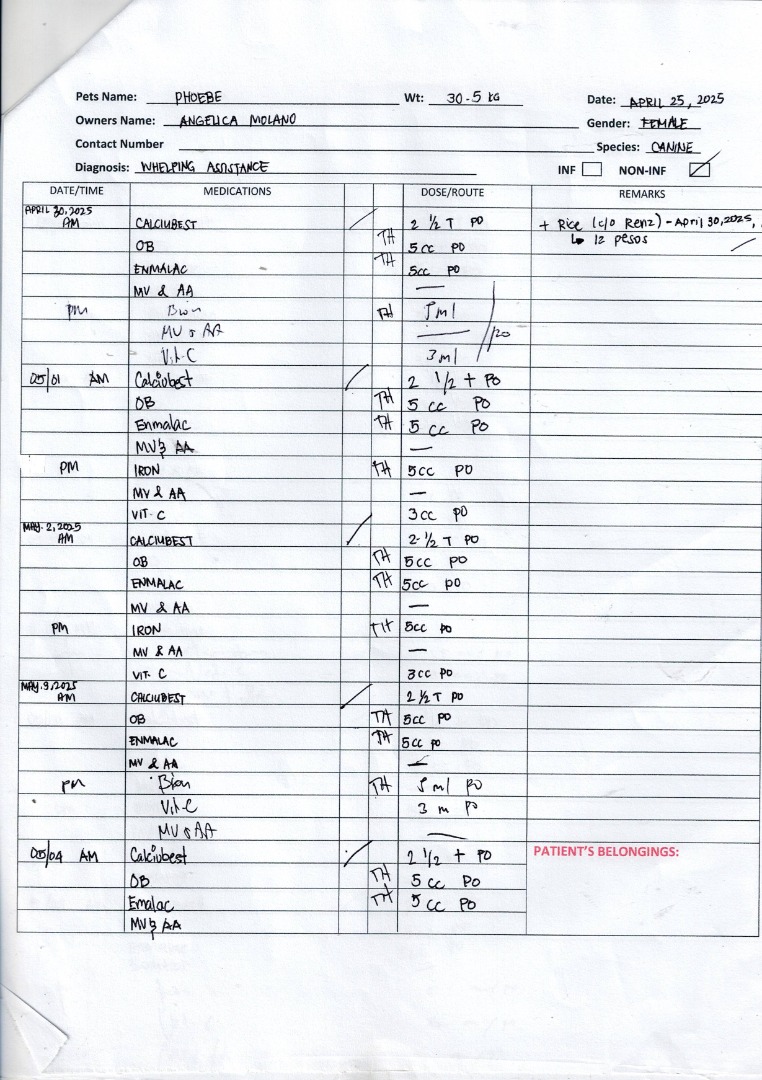 Pets Name: PHOEBE Wt: 30-5 KG Date: APRIL 25, 2025
Owners Name: ANGELICA MOLANO Gender: FEMALE
Contact Number Species: CANINE
Diagnosis: WHELPING ASSISTANCE INF NON-INF
DATE/TIME MEDICATIONS DOSE/ROUTE REMARKS
APRIL 30, 2025
AM CALCIUBEST 2 1/2 T PO + Rice (c/o Renz) - April 30, 2025,
OB TH 5 cc PO ↳ 12 pesos
ENMALAC TH 5cc PO
MV & AA —
pm Bion TH 5 ml
MV & AA — PO
Vit-C 3 ml
05/01 AM Calciubest 2 1/2 + PO
OB TH 5 cc PO
Enmalac TH 5 cc PO
MV & AA —
PM IRON TH 5cc PO
MV & AA —
VIT-C 3cc PO
MAY. 2, 2025
AM CALCIUBEST 2-1/2 T PO
OB TH 5cc PO
ENMALAC TH 5cc PO
MV & AA —
PM IRON TH 5cc PO
MV & AA —
VIT. C 3cc PO
MAY. 3, 2025
AM CALCIUBEST 2 1/2 T PO
OB TH 5cc PO
ENMALAC TH 5cc PO
MV & AA —
pm Bion TH 5 ml PO
Vit-C 3 m PO
MV & AA —
05/04 AM Calciubest 2 1/2 + PO
OB TH 5 cc PO
Emalac TH 5 cc PO
MV & AA
PATIENT'S BELONGINGS: